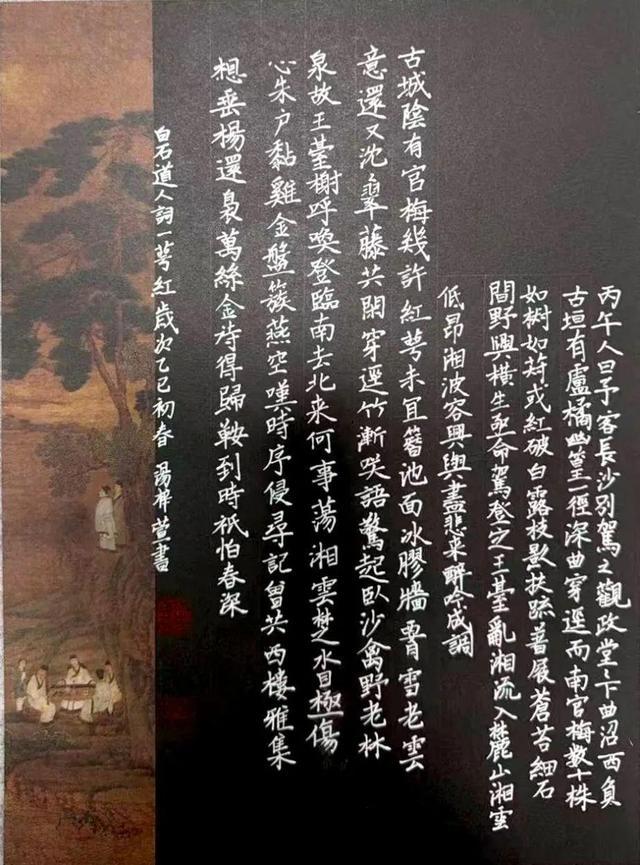 丙午人日予客長沙別駕之觀政堂下曲沼西負
古垣有盧橘幽篁一徑深曲穿逕而南官梅數十株
如椒如菽或紅破白露枝影扶疏著屐蒼苔細石
間野興橫生亟命駕登定王臺亂湘流入麓山湘雲
低昂湘波容與興盡悲來醉吟成調
古城陰有官梅幾許紅萼未宜簪池面冰膠牆腰雪老雲
意還又沈沈翠藤共閒穿逕竹漸笑語驚起臥沙禽野老林
泉故王臺榭呼喚登臨南去北来何事蕩湘雲楚水目極傷
心朱户黏雞金盤簇燕空嘆時序侵尋記曾共西樓雅集
想垂楊還裊萬絲金待得歸鞍到時祇怕春深
白石道人詞一萼紅歲次乙巳初春 湯梓萱書